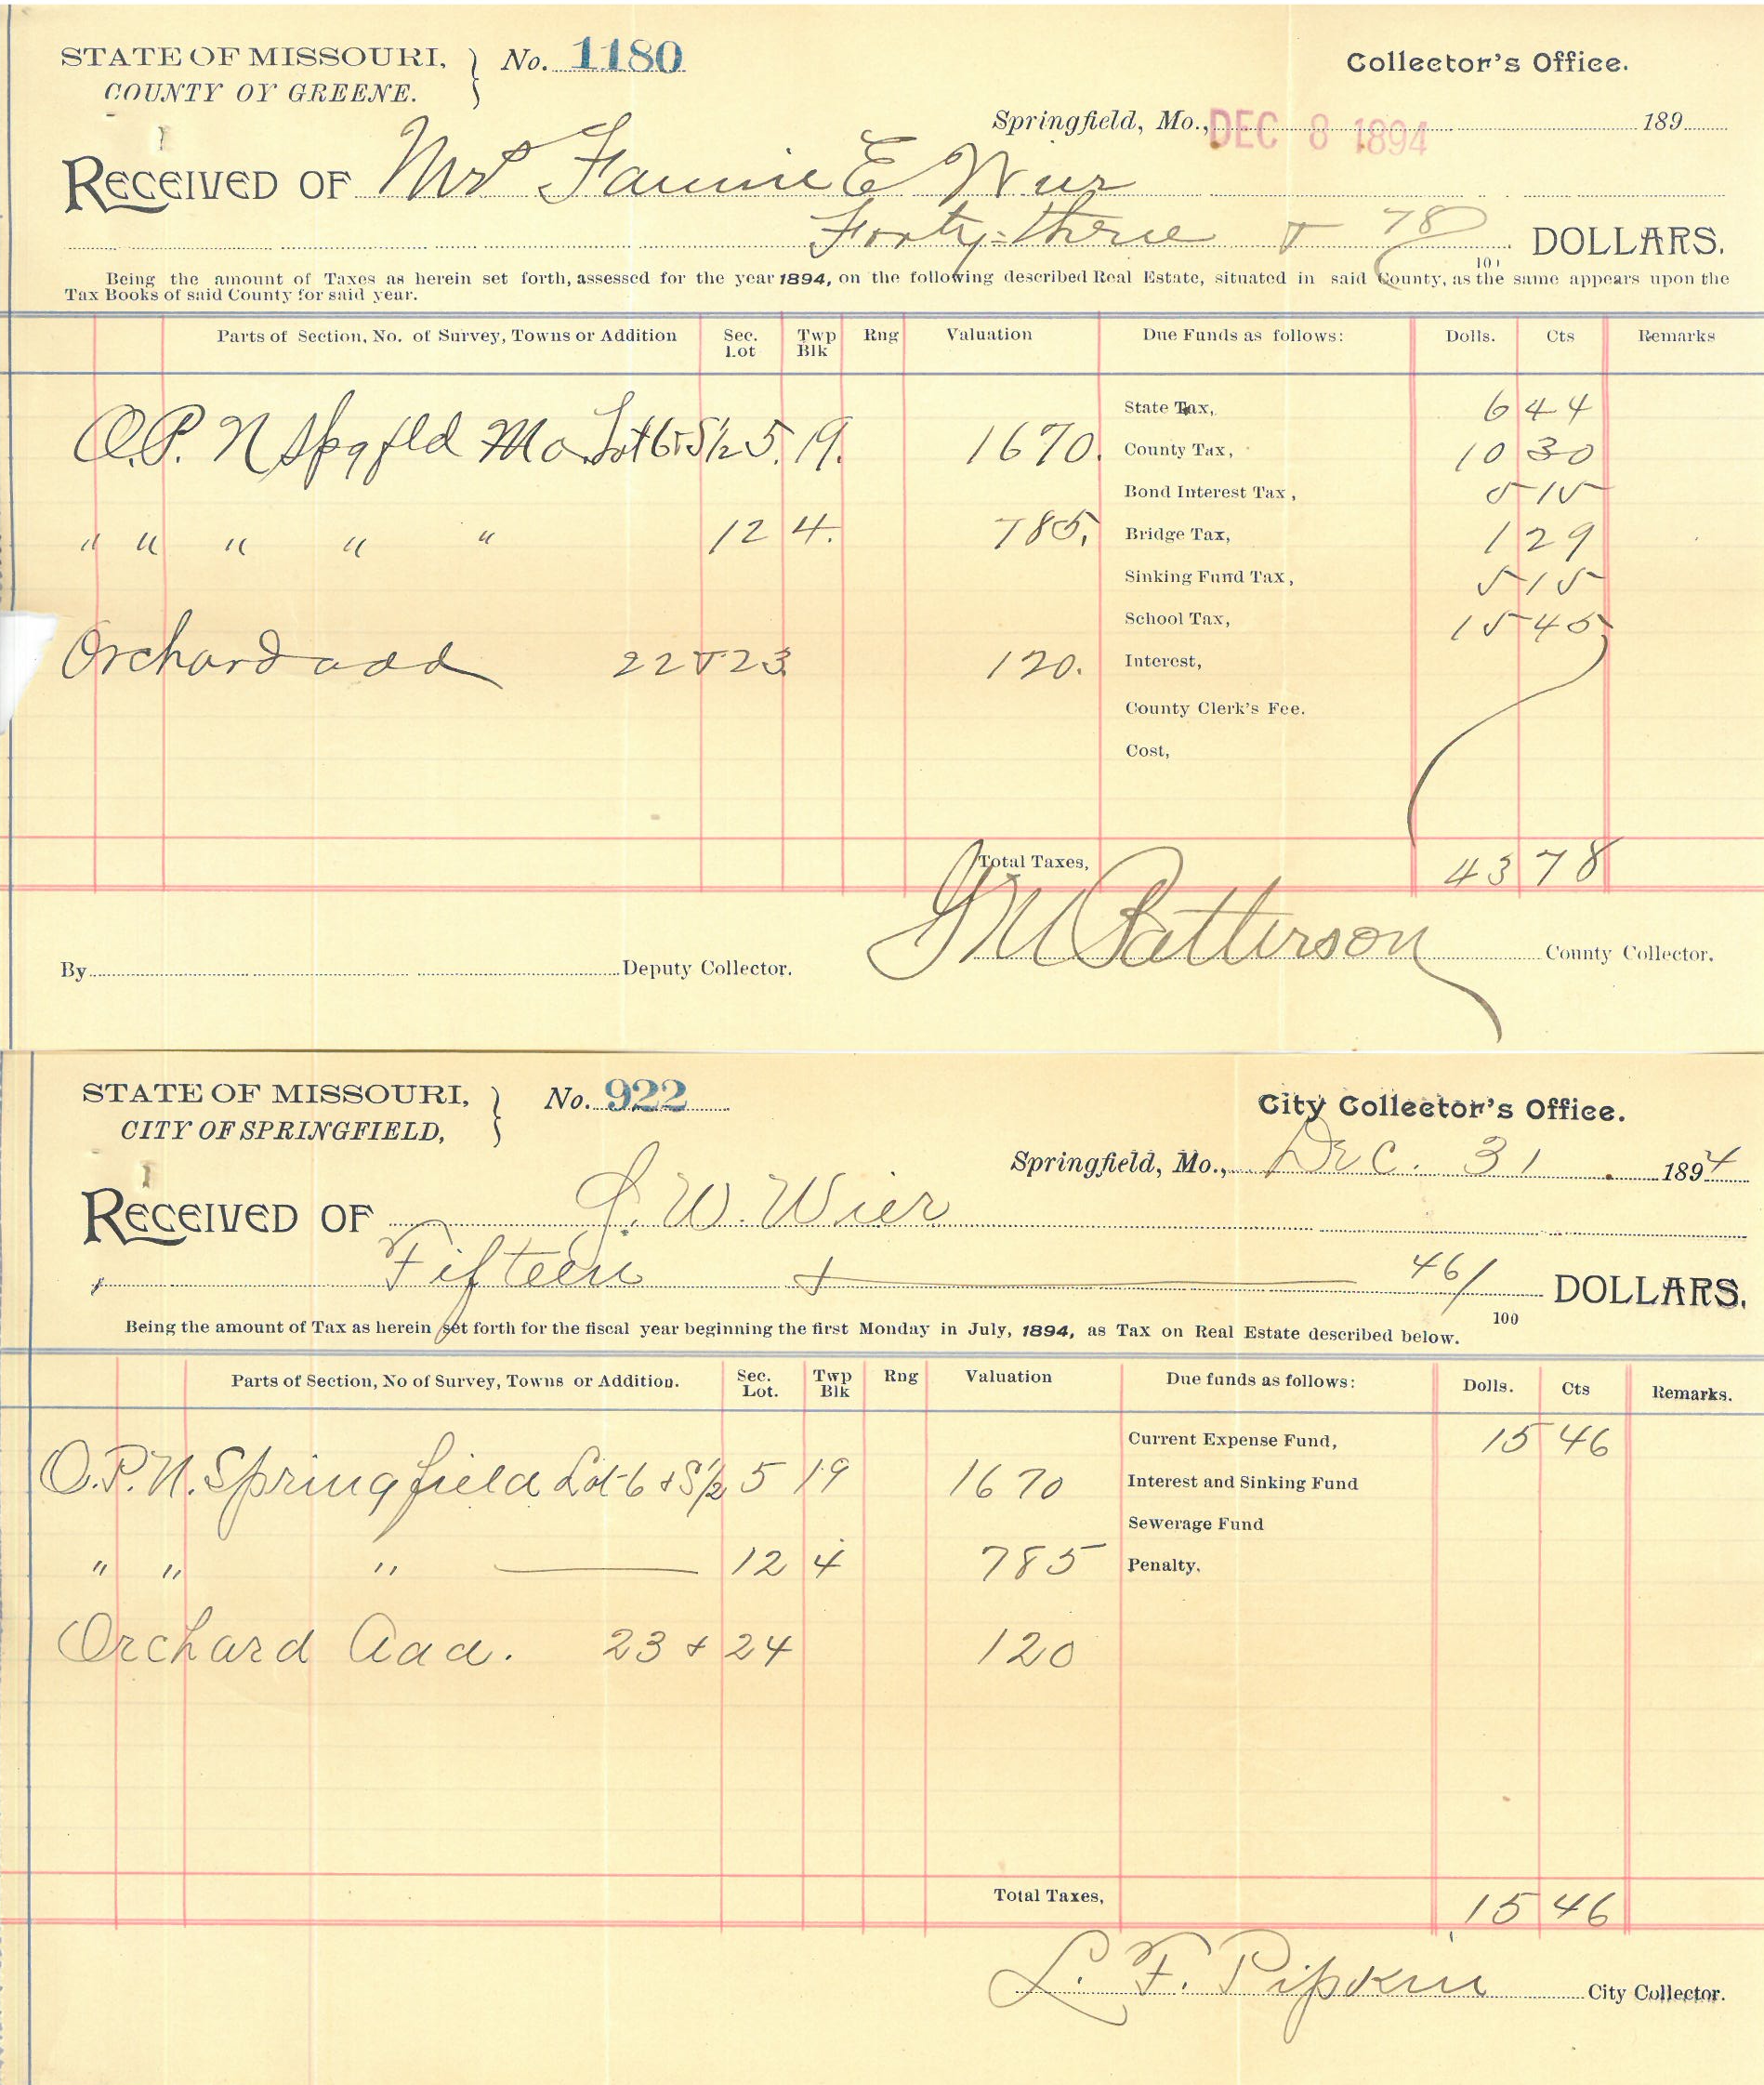 STATE OF MISSOURI, } No. 1180 Collector's Office.
COUNTY OY GREENE.
Springfield, Mo., DEC 8 1894 189
RECEIVED OF Mrs Fannie E Wier
Forty-three & 78/100 DOLLARS.
Being the amount of Taxes as herein set forth, assessed for the year 1894, on the following described Real Estate, situated in said County, as the same appears upon the
Tax Books of said County for said year.
Parts of Section, No. of Survey, Towns or Addition Sec. Lot Twp Blk Rng Valuation Due Funds as follows: Dolls. Cts Remarks
State Tax, 6 44
O.P. N Spgfld Mo Lot 6 & S 1/2 5. 19. 1670. County Tax, 10 30
Bond Interest Tax, 5 15
" " " " " 12 4. 785, Bridge Tax, 1 29
Sinking Fund Tax, 5 15
School Tax, 15 45
Orchard add 22 & 23 120. Interest,
County Clerk's Fee.
Cost,
Total Taxes, 43 78
By Deputy Collector. Patterson County Collector.
STATE OF MISSOURI, } No. 922 City Collector's Office.
CITY OF SPRINGFIELD,
Springfield, Mo., Dec. 31 1894
RECEIVED OF J. W. Wier
Fifteen & 46/100 DOLLARS.
Being the amount of Tax as herein set forth for the fiscal year beginning the first Monday in July, 1894, as Tax on Real Estate described below.
Parts of Section, No of Survey, Towns or Addition. Sec. Lot. Twp Blk Rng Valuation Due funds as follows: Dolls. Cts Remarks.
Current Expense Fund, 15 46
O.P.N. Springfield Lot 6 & S 1/2 5 19 1670 Interest and Sinking Fund
Sewerage Fund
" " " 12 4 785 Penalty.
Orchard Add. 23 & 24 120
Total Taxes, 15 46
L. F. Pipkin City Collector.